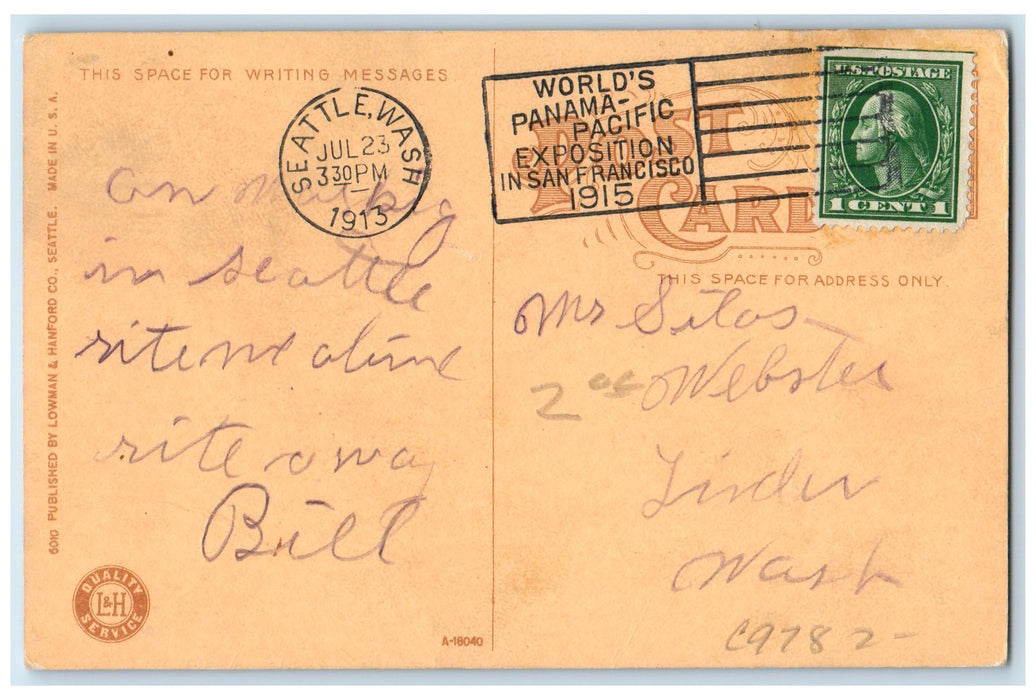 THIS SPACE FOR WRITING MESSAGES
SEATTLE, WASH
JUL 23
3 30 PM
1913
WORLD'S
PANAMA-
PACIFIC
EXPOSITION
IN SAN FRANCISCO
1915
U.S. POSTAGE
1 CENT 1
POST
CARD
THIS SPACE FOR ADDRESS ONLY.
in seattle
rite me
rite away
Bill
Mr Silas
Webster
Wash
C978 2-
6010 PUBLISHED BY LOWMAN & HANFORD CO., SEATTLE. MADE IN U. S. A.
QUALITY
L&H
SERVICE
A-16040